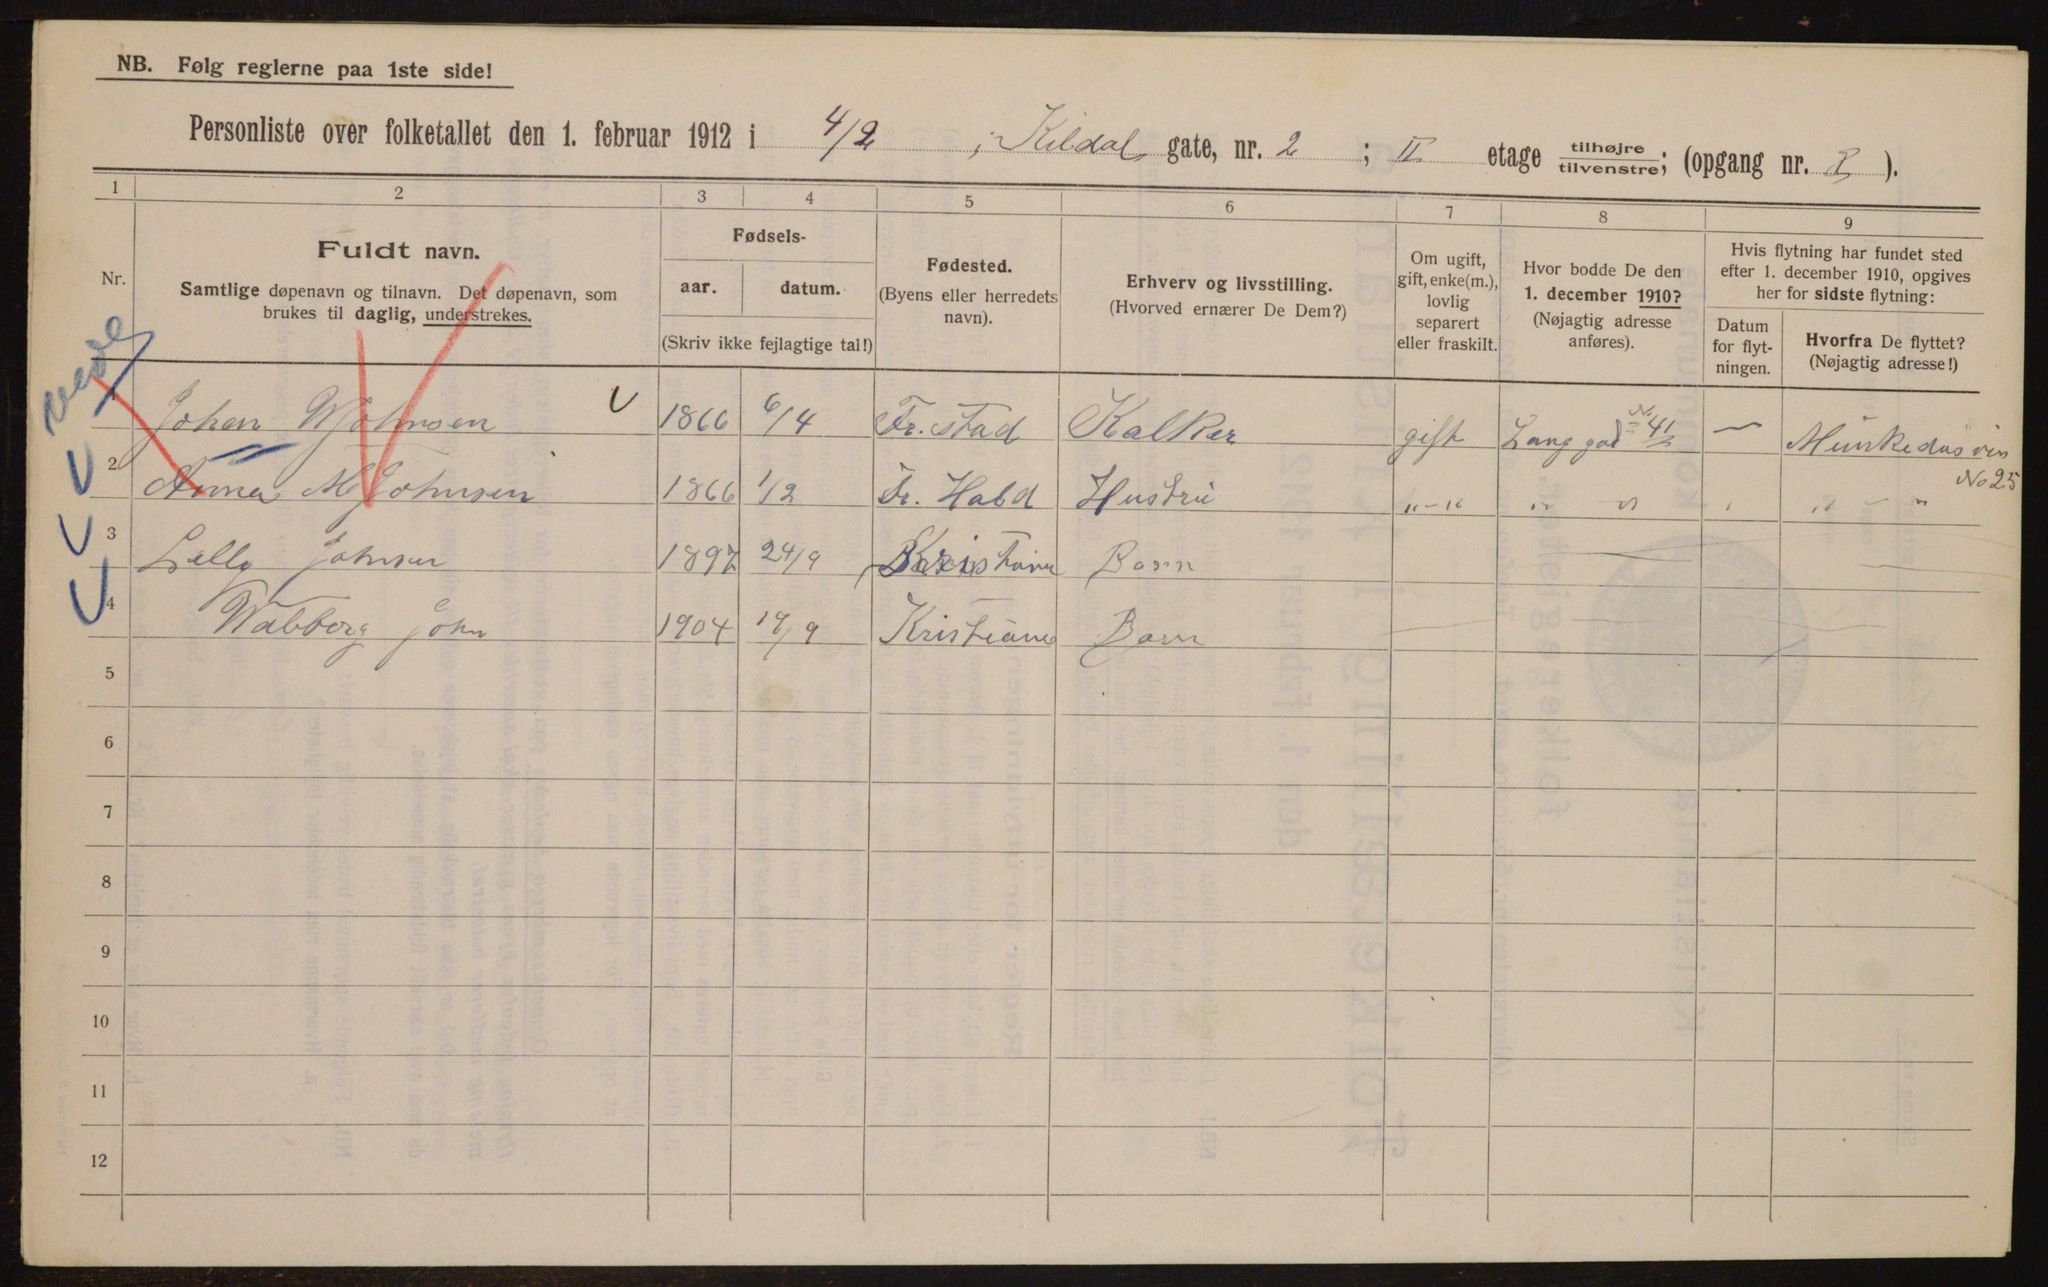 NB. Følg reglerne paa 1ste side!
Personliste over folketallet den 1. februar 1912 i 4/2 , Kildal gate, nr. 2 ; II etage tilhøjre/tilvenstre; (opgang nr. ).
1 2 3 4 5 6 7 8 9
Nr.
Fuldt navn.
Samtlige døpenavn og tilnavn. Det døpenavn, som
brukes til daglig, understrekes.
Fødsels-
aar. datum.
(Skriv ikke fejlagtige tal!)
Fødested.
(Byens eller herredets
navn).
Erhverv og livsstilling.
(Hvorved ernærer De Dem?)
Om ugift,
gift, enke(m.),
lovlig
separert
eller fraskilt.
Hvor bodde De den
1. december 1910?
(Nøjagtig adresse
anføres).
Hvis flytning har fundet sted
efter 1. december 1910, opgives
her for sidste flytning:
Datum
for flyt-
ningen.
Hvorfra De flyttet?
(Nøjagtig adresse!)
1 Johan W Johnsen 1866 6/4 Fr. stad Kalker gift Lang gad No 41 — Munkedasvin
No 25
2 Anna M Johnsen 1866 1/2 Fr. Hald Hustru "-" " " " - "
3 Lally Johnsen 1897 24/9 Kristiania Barn
4 Walborg John 1904 19/9 Kristiania Barn
5
6
7
8
9
10
11
12